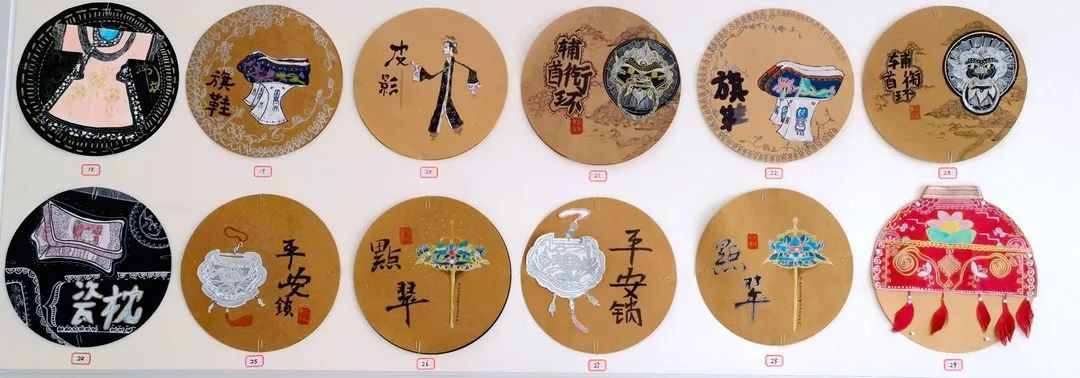 旗鞋
皮影
辅首
衔环
旗鞋
辅首
衔环
18
19
20
21
22
23
瓷枕
平安鎖
點翠
平安锁
點翠
24
25
26
27
28
29